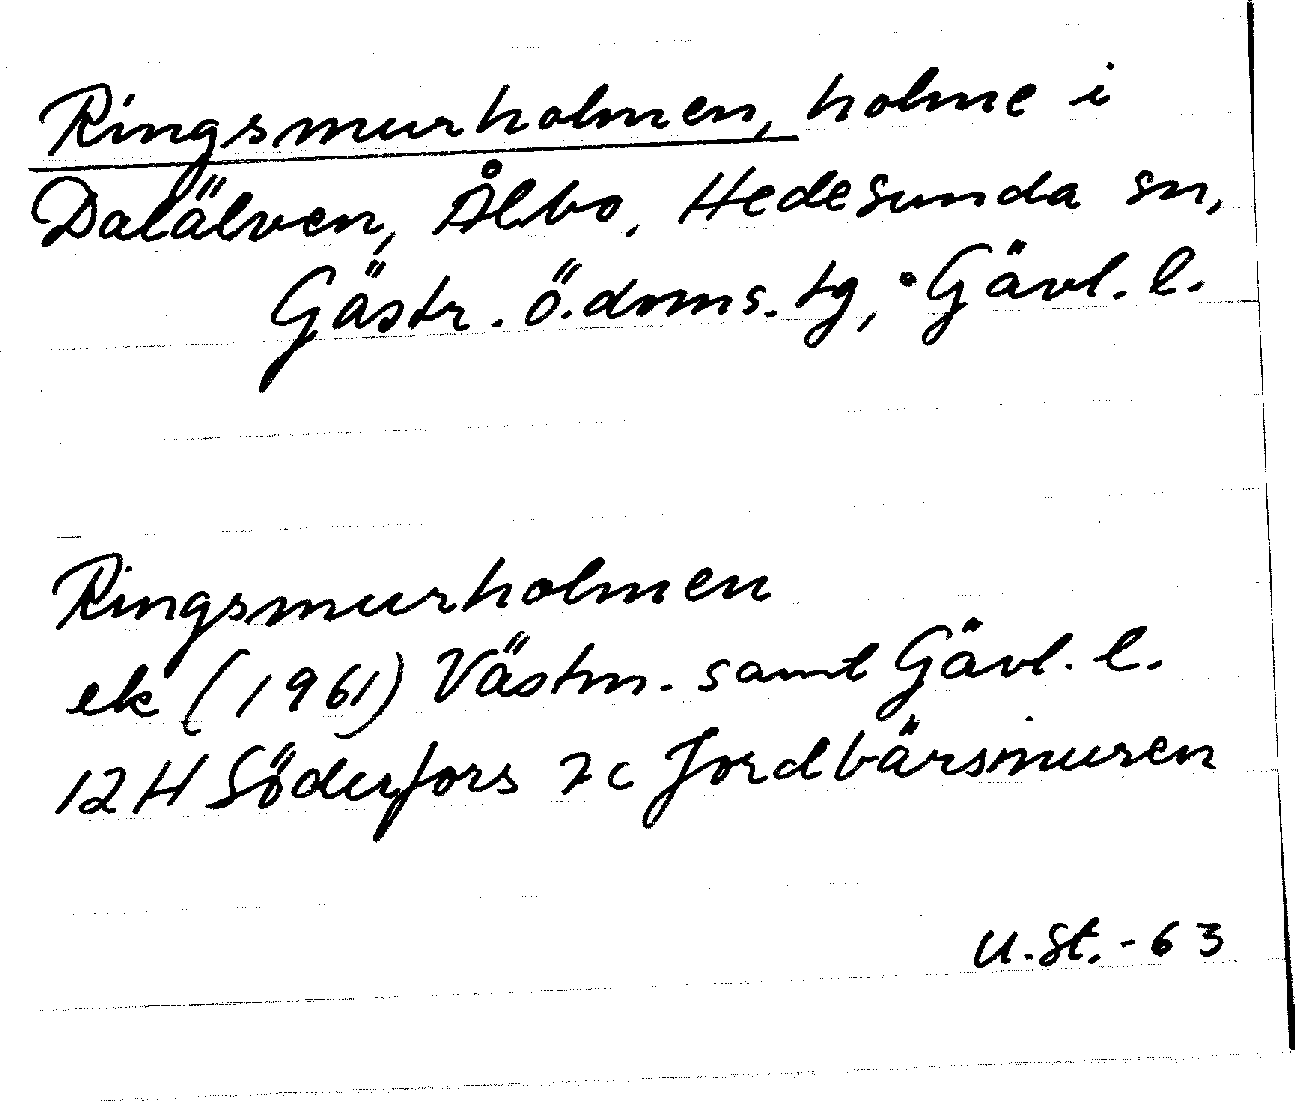 Ringsmurholmen, holme i
Dalälven, Ålbo, Hedesunda sn,
Gästr. ö. doms. tg, Gävl. l.
Ringsmurholmen
ek (1961) Västm. samt Gävl. l.
12H Söderfors 7c Jordbärsmuren
U. St. -63